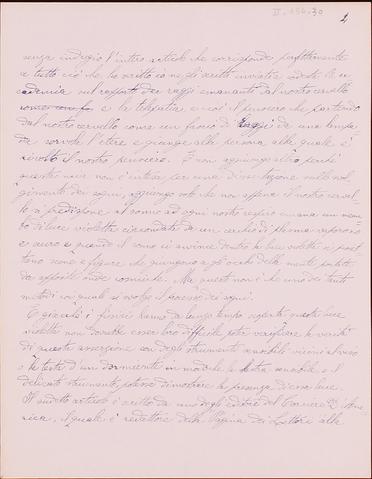 II.156.30
2
senza indugio l'intero articolo che corrisponde perfettamente
a tutto ciò che ho scritto io negli scritti inviati a codesta Ac
cademia sul rapporto dei raggi emananti dal nostro cervello
e la telepatia e così il pensiero che partendo
dal nostro cervello come un fascio di raggi da una lampa
da sorvola l'etere e giunge alla persona alla quale è
rivolto il nostro pensiero. E non aggiungo altro perché
questa mia non è intesa per una dissertazione sullo svol
gimento dei sogni, aggiungo solo che non appena il nostro cervel
lo è predisposto al sonno ad ogni nostro respiro emana un nem
bo di luce violetta circondata da un cerchio di fiamma vaporoso
e scuro e quando il sonno si avvicina dentro la luce violetta si proiet
tano scene e figure che giungono agli occhi della mente portate
da apposite onde cosmiche. Ma questo non è che uno dei tanti
metodi coi quali si svolge il processo dei sogni.
E giacché i fisici hanno da lungo tempo scoperta questa luce
violetta non sarebbe cosa loro difficile poter verificare la verità
di questa asserzione con degli strumenti sensibili vicino al viso
o la testa d'un dormiente in modo che la lastra sensibile o il
delicato strumento, potesse dimostrare la presenza di essa luce.
Il suddetto articolo è scritto da uno degli editori del Corriere D'Ame
rica, il quale è redattore della Pagina dei Lettori alla